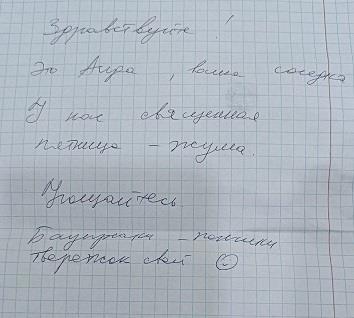 Здравствуйте!
Это Аира, ваша соседка
У нас священная
пятница - жума.
Угощайтесь
Баурсаки - пончики
творожок свой ☺